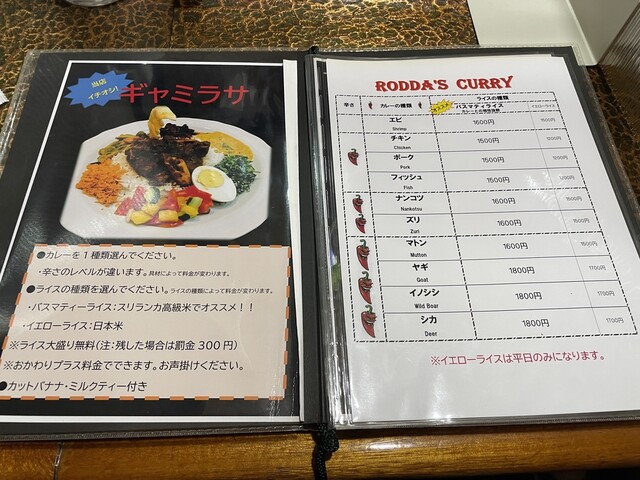 当店
イチオシ!
ギャミラサ
●カレーを1種類選んでください。
・辛さのレベルが違います。具材によって料金が変わります。
●ライスの種類を選んでください。ライスの種類によって料金が変わります。
・バスマティーライス:スリランカ高級米でオススメ!!
・イエローライス:日本米
※ライス大盛り無料(注:残した場合は罰金300円)
※おかわりプラス料金でできます。お声掛けください。
●カットバナナ・ミルクティー付き
RODDA'S CURRY
辛さ カレーの種類 ライスの種類
オススメ バスマティライス イエローライス
エビ 1600円 1500円
Shrimp
チキン 1500円 1200円
Chicken
ポーク 1500円 1200円
Pork
フィッシュ 1500円 1200円
Fish
ナンコツ 1600円 1500円
Nankotsu
ズリ 1600円 1500円
Zuri
マトン 1600円 1500円
Mutton
ヤギ 1800円 1700円
Goat
イノシシ 1800円 1700円
Wild Boar
シカ 1800円 1700円
Deer
※イエローライスは平日のみになります。